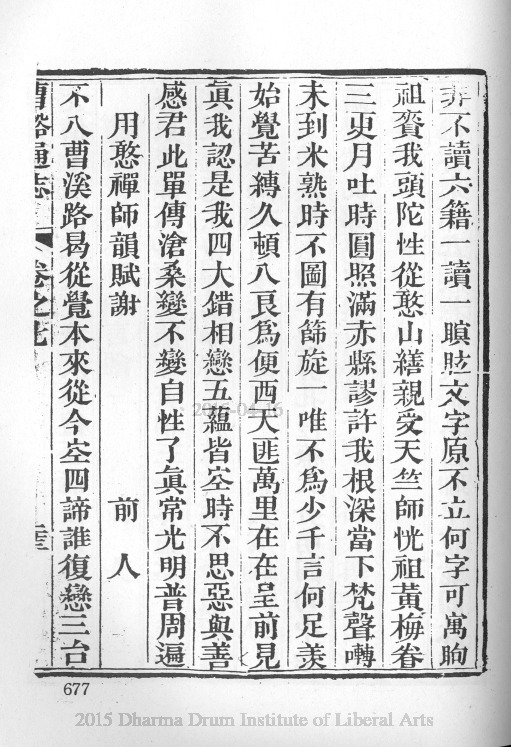 非不讀六籍一讀一瞋眩文字原不立何字可寓眴
祖賚我頭陀性從憨山繕親受天竺師恍祖黃梅眷
三更月吐時圓照滿赤縣謬許我根深當下梵聲囀
未到米熟時不圖有篩旋一唯不為少千言何足羨
始覺苦縛久頓入艮為便西天匪萬里在在呈前見
眞我認是我四大錯相戀五蘊皆空時不思惡與善
感君此單傳滄桑變不變自性了眞常光明普周遍
用憨禪師韻賦謝　前人
不入曹溪路曷從覺本來從今空四諦誰復戀三台
曹谿通志
卷之
677
2015 Dharma Drum Institute of Liberal Arts